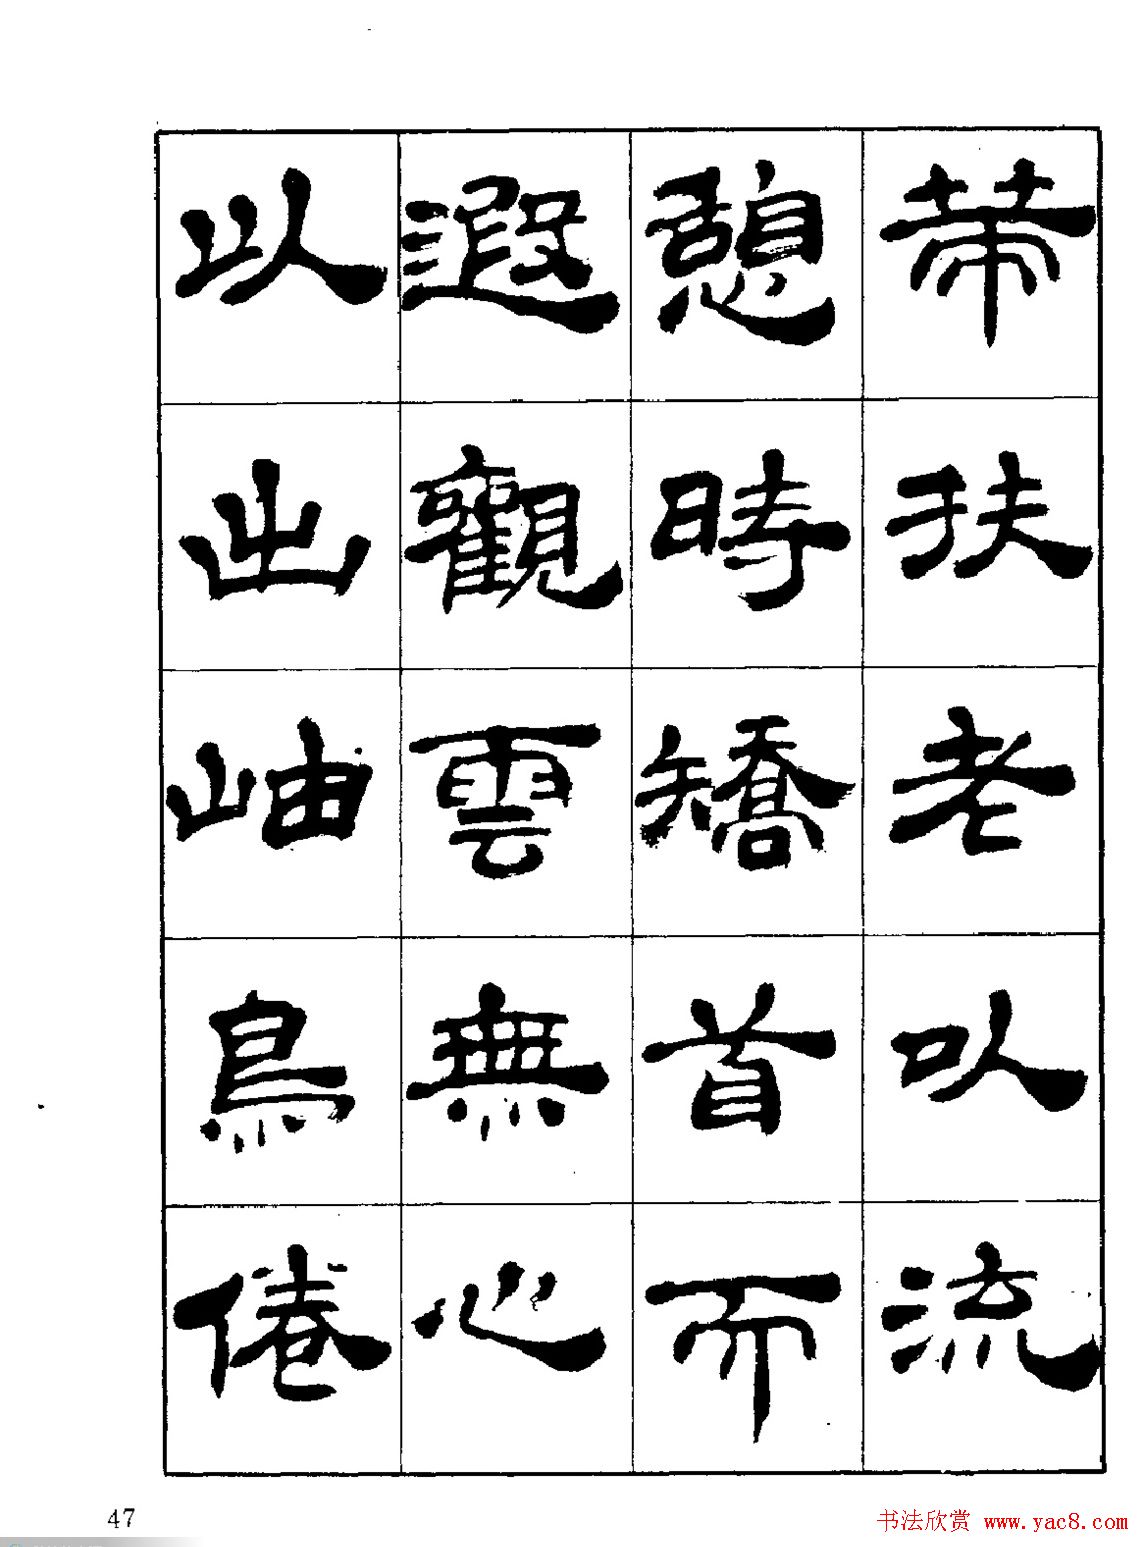 策扶老以流
憩時矯首而
遐觀雲無心
以出岫鳥倦
47
书法欣赏 www.yac8.com